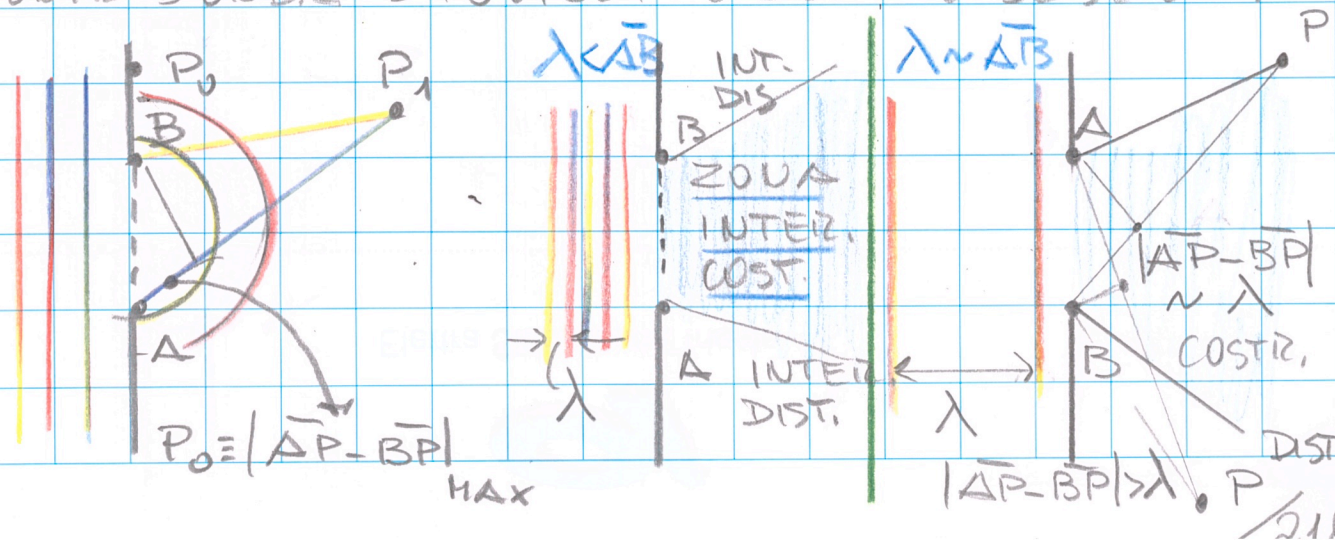 P₀
P₁
B
A
P₀≡|A̅P̅-B̅P̅|
MAX
λ<A̅B̅
INT.
DIS
B
ZONA
INTER.
COST.
A
INTER
DIST.
λ
λ~A̅B̅
P
A
|A̅P̅-B̅P̅|
~ λ
COSTR.
B
λ
DIST
|A̅P̅-B̅P̅|>λ
P